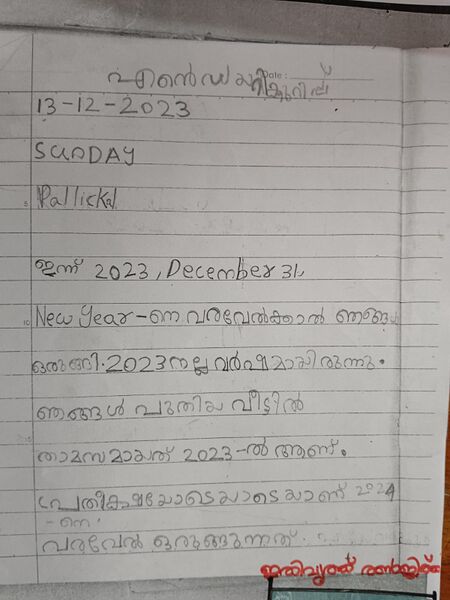 എൻെഡയറിക്കുറിപ്പ്
Date :
13-12-2023
SUNDAY
Pallickal
ഇന്ന് 2023, December 31,
New Year-നെ വരവേൽക്കാൽ ഞങ്ങൾ
ഒരുങ്ങി. 2023 നല്ല വർഷമായിരുന്നു.
ഞങ്ങൾ പുതിയ വീട്ടിൽ
താമസമായത് 2023-ൽ ആണ്.
പ്രതീക്ഷയോടെയാടെയാണ് 2024
-നെ
വരവേൽ ഒരുങ്ങുന്നത്.